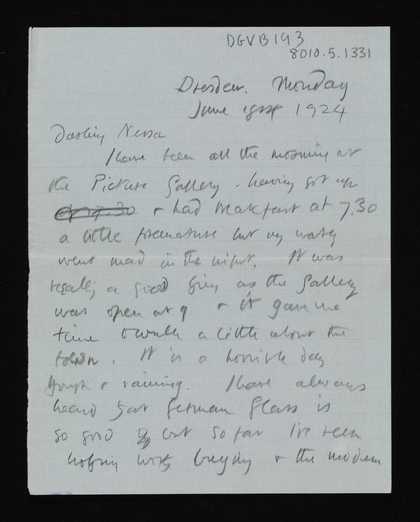 DGVB193
8010.5.1331
Dresden. Monday
June 1924
Darling Nessa
I have been all the morning at
the Picture Gallery. having got up
at 7.30 & had breakfast at 7.30
a little premature but my watch
went mad in the night. It was
really a good thing as the Gallery
was open at 9 & it gave me
time to walk a little about the
town. It is a horrible day
though & raining. I have always
heard that German glass is
so good but so far I've seen
nothing worth buying & the modern